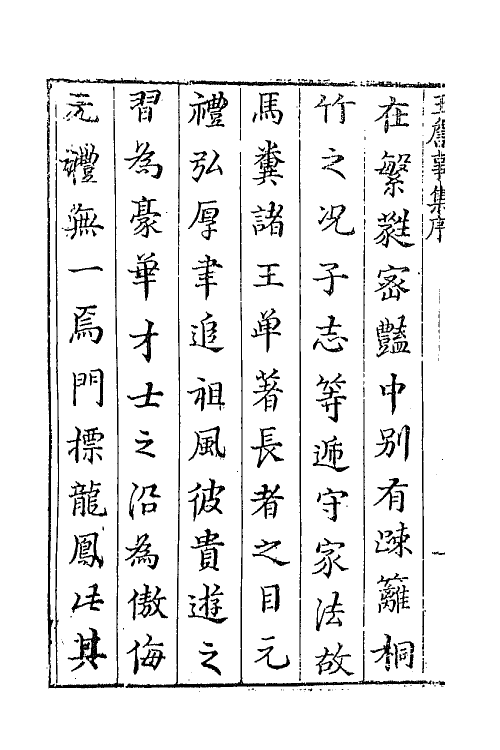 王詹事集序
在繁蕤密豔中別有踈籬桐
竹之况子志等遞守家法故
馬糞諸王单著長者之目元
禮弘厚聿追祖風彼貴遊之
習為豪華才士之沿為傲侮
元禮無一焉門標龍鳳此其
一